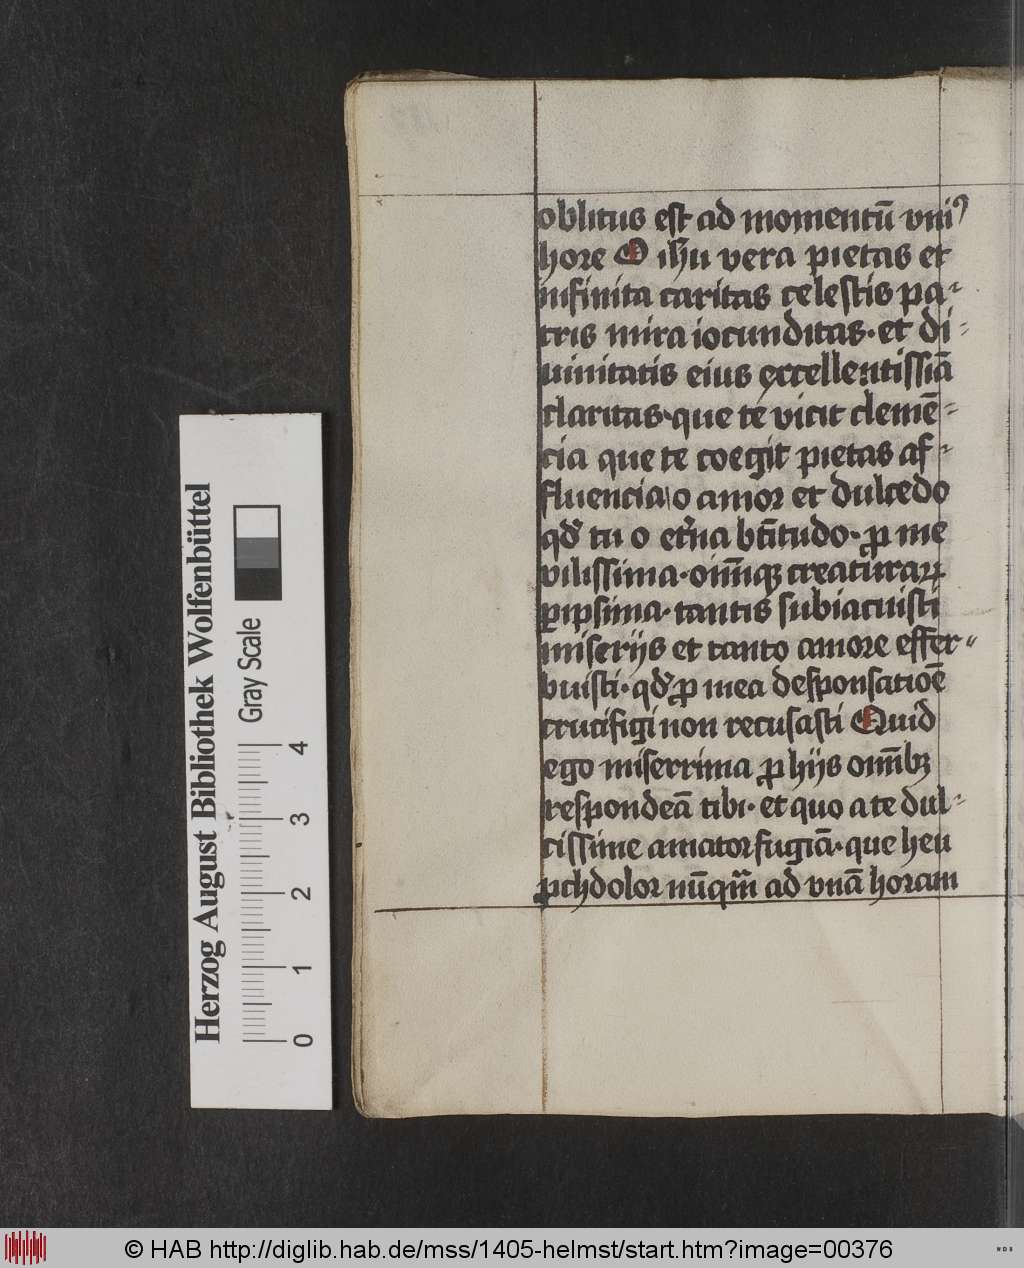 oblitus est ad momentū vniꝰ
hore O ihu vera pietas et
infinita caritas celestis pa-
tris mira iocunditas · et di-
uinitatis eius excellentissiā
claritas · que te vicit clemē-
cia que te coegit pietas af-
fluencia o amor et dulcedo
qd' tu o et'na bt̄itudo · ꝓ me
vilissima · om̄iqꝫ creaturaꝝ
ꝑipsima · tantis subiacuisti
miserijs et tanto amore effer-
buisti · qd' ꝓ mea desponsatiōe
crucifigi non recusasti Quid
ego miserrima ꝓ hijs om̄ibꝫ
respondeā tibi · et quo a te dul-
cissime amator fugiā · que heu
ꝓch dolor nūqm̄ ad vnā horam
Herzog August Bibliothek Wolfenbüttel
Gray Scale
0 1 2 3 4
© HAB http://diglib.hab.de/mss/1405-helmst/start.htm?image=00376
WDB